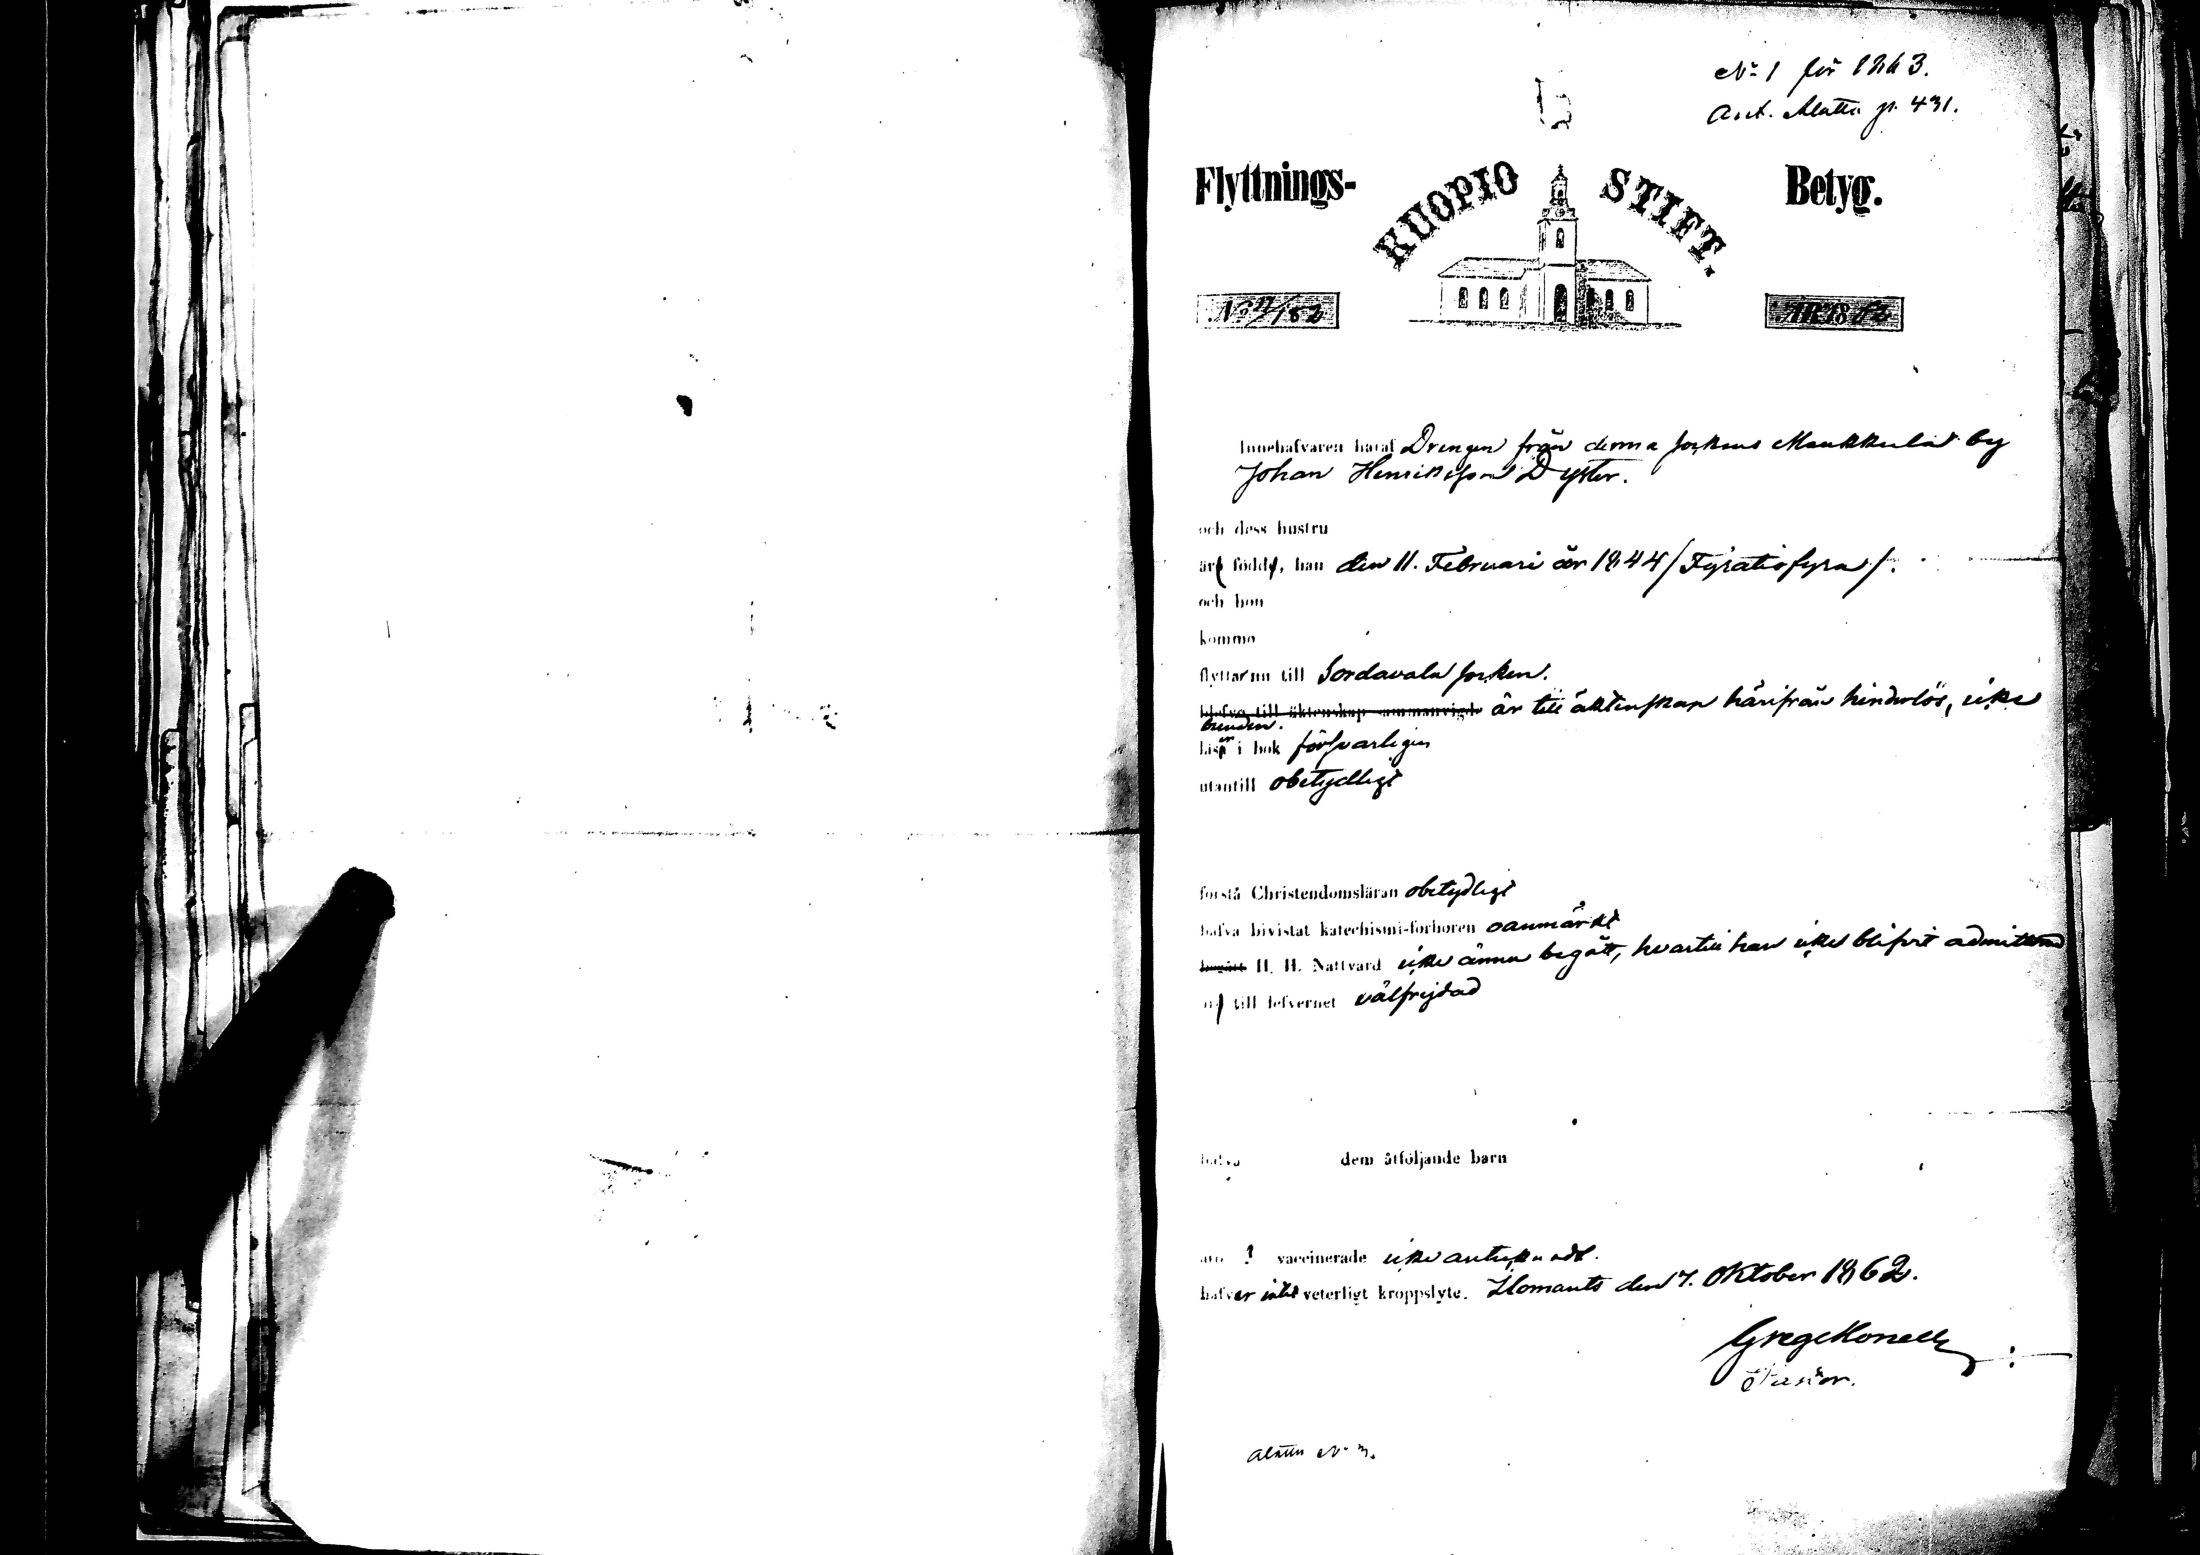 No 1 för 1863.
Ant. Alattu p. 431.
Flyttnings- KUOPIO STIFT. Betyg.
No /182 ÅR 1862
Innehafvaren häraf Drengen från denna sockens Maukkula by
Johan Henriksson Dyster.
och dess hustru
är född, han den 11. Februari år 1844 / Fyratiofyra /.
och hon
kommo
flyttar nu till Sordavala socken.
blefvo till äktenskap sammanvigde är till äktenskap härifrån hinderlös, icke
bunden.
läser i bok försvarligen
utantill obetydligt
förstå Christendomsläran obetydligt
hafva bivistat katechismi-förhören oanmärkt
begått H. H. Nattvard icke ännu begått, hvartill han icke blifvit admitterad
till lefvernet välfrejdad
hafva dem åtföljande barn
äro ? vaccinerade icke antecknadt.
hafver intet veterligt kroppslyte. Ilomants den 7. Oktober 1862.
Pastor.
Alattu No 3.